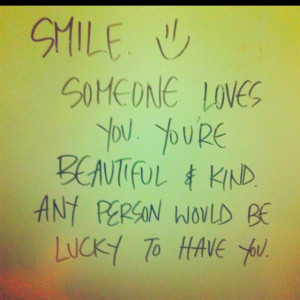 SMILE. :)
SOMEONE LOVES
YOU. YOU'RE
BEAUTIFUL & KIND.
ANY PERSON WOULD BE
LUCKY TO HAVE YOU.